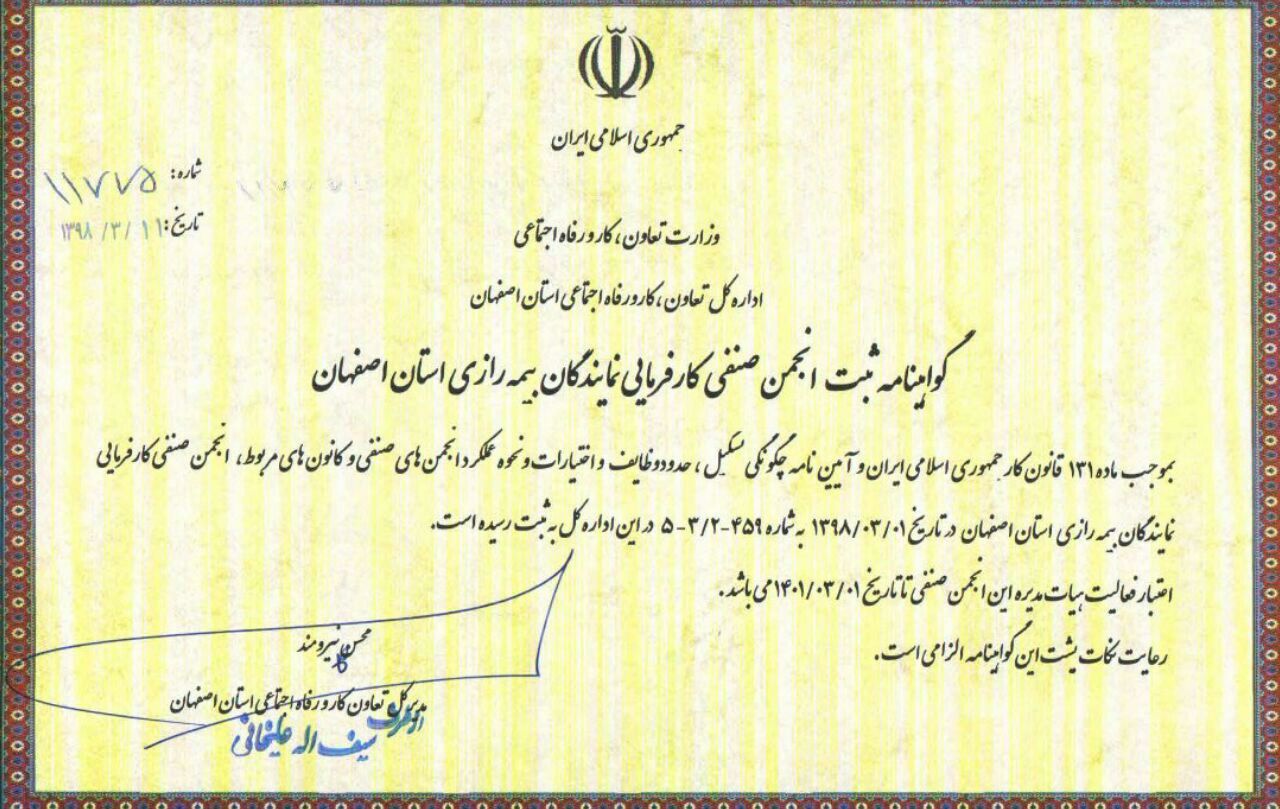 جمهوری اسلامی ایران
شماره: ۱۱۷۷۵
تاریخ: ۱۳۹۸/۳/۱۱
وزارت تعاون، کار و رفاه اجتماعی
اداره کل تعاون، کار و رفاه اجتماعی استان اصفهان
گواهینامه ثبت انجمن صنفی کارفرمایی نمایندگان بیمه رازی استان اصفهان
بموجب ماده ۱۳۱ قانون کار جمهوری اسلامی ایران و آیین نامه چگونگی تشکیل، حدود وظایف و اختیارات و نحوه عملکرد انجمن های صنفی و کانون های مربوط، انجمن صنفی کارفرمایی
نمایندگان بیمه رازی استان اصفهان در تاریخ ۱۳۹۸/۰۳/۰۱ به شماره ۴۵۹-۳/۲-۵ در این اداره کل به ثبت رسیده است.
اعتبار فعالیت هیات مدیره این انجمن صنفی تا تاریخ ۱۴۰۱/۰۳/۰۱ می باشد.
رعایت نکات پشت این گواهینامه الزامی است.
محسن نیرومند
مدیر کل تعاون کار و رفاه اجتماعی استان اصفهان
از طرف
سیف اله علیخانی